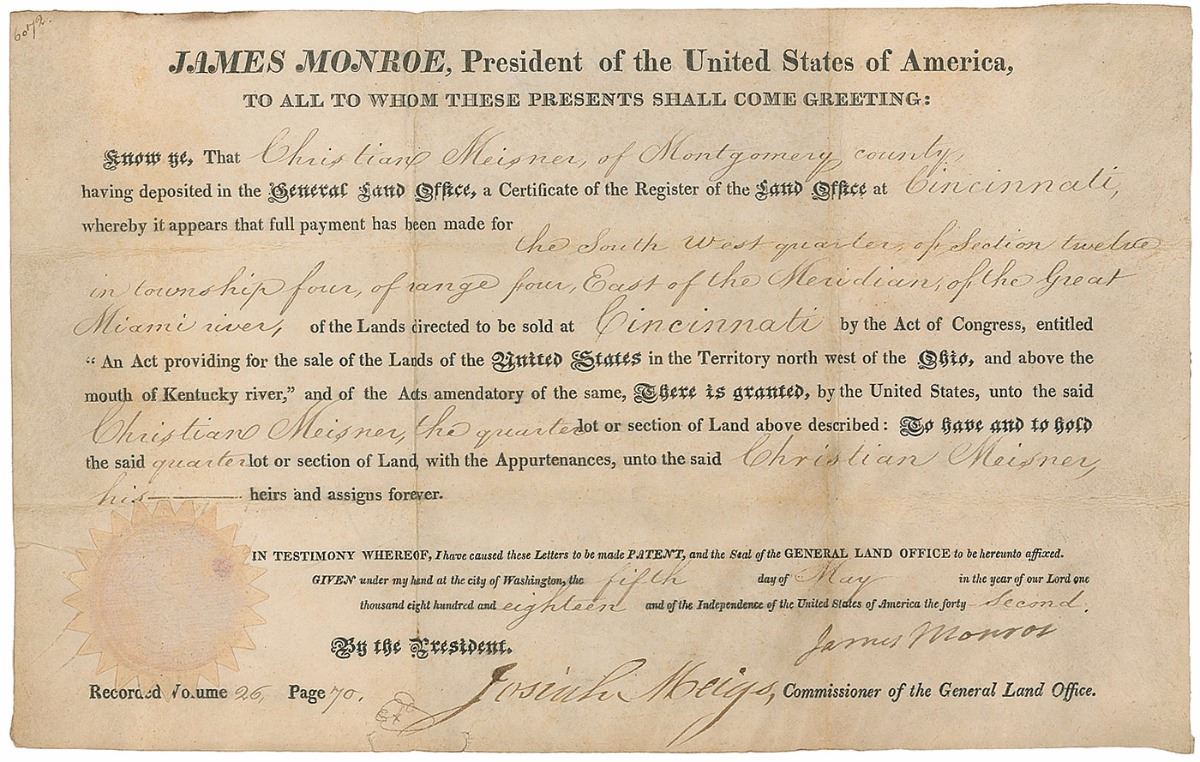 6072.
JAMES MONROE, President of the United States of America,
TO ALL TO WHOM THESE PRESENTS SHALL COME GREETING:
Know ye, That Christian Meisner, of Montgomery county,
having deposited in the General Land Office, a Certificate of the Register of the Land Office at Cincinnati,
whereby it appears that full payment has been made for the South West quarter, of Section twelve
in township four, of range four, East of the Meridian, of the Great
Miami river, of the Lands directed to be sold at Cincinnati by the Act of Congress, entitled
“ An Act providing for the sale of the Lands of the United States in the Territory north west of the Ohio, and above the
mouth of Kentucky river,” and of the Acts amendatory of the same, There is granted, by the United States, unto the said
Christian Meisner, the quarter lot or section of Land above described: To have and to hold
the said quarter lot or section of Land, with the Appurtenances, unto the said Christian Meisner,
his heirs and assigns forever.
IN TESTIMONY WHEREOF, I have caused these Letters to be made PATENT, and the Seal of the GENERAL LAND OFFICE to be hereunto affixed.
GIVEN under my hand at the city of Washington, the fifth day of May in the year of our Lord one
thousand eight hundred and eighteen and of the Independence of the United States of America the forty second.
James Monroe
By the President.
Josiah Meigs, Commissioner of the General Land Office.
Recorded Volume 26, Page 70.